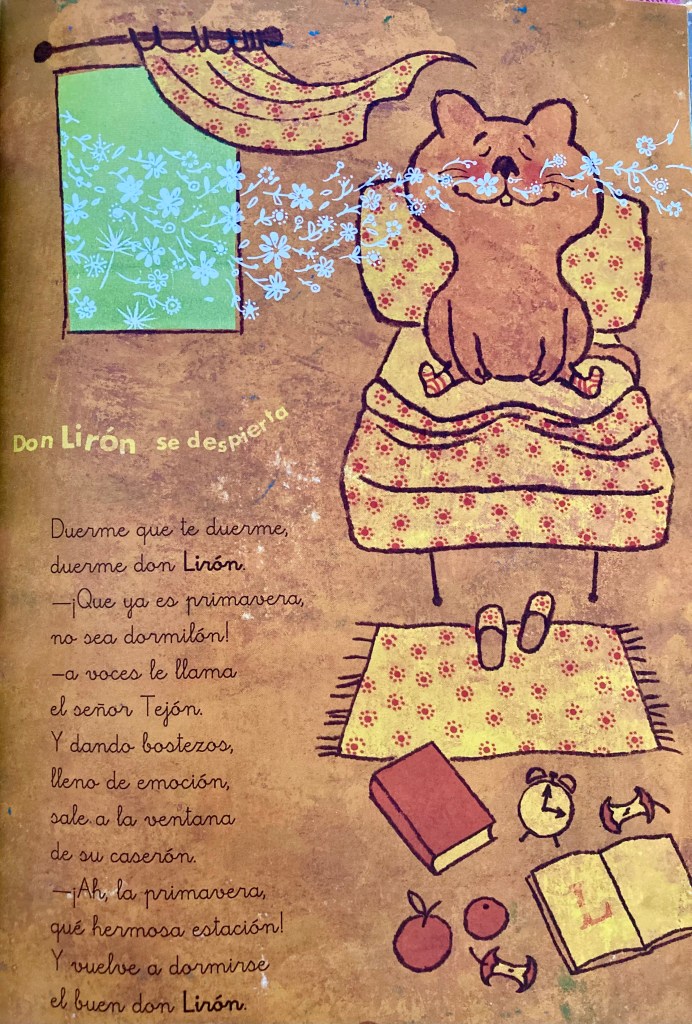 Don Lirón se despierta
Duerme que te duerme,
duerme don Lirón.
—¡Que ya es primavera,
no sea dormilón!
—a voces le llama
el señor Tejón.
Y dando bostezos,
lleno de emoción,
sale a la ventana
de su caserón.
—¡Ah, la primavera,
qué hermosa estación!
Y vuelve a dormirse
el buen don Lirón.
L